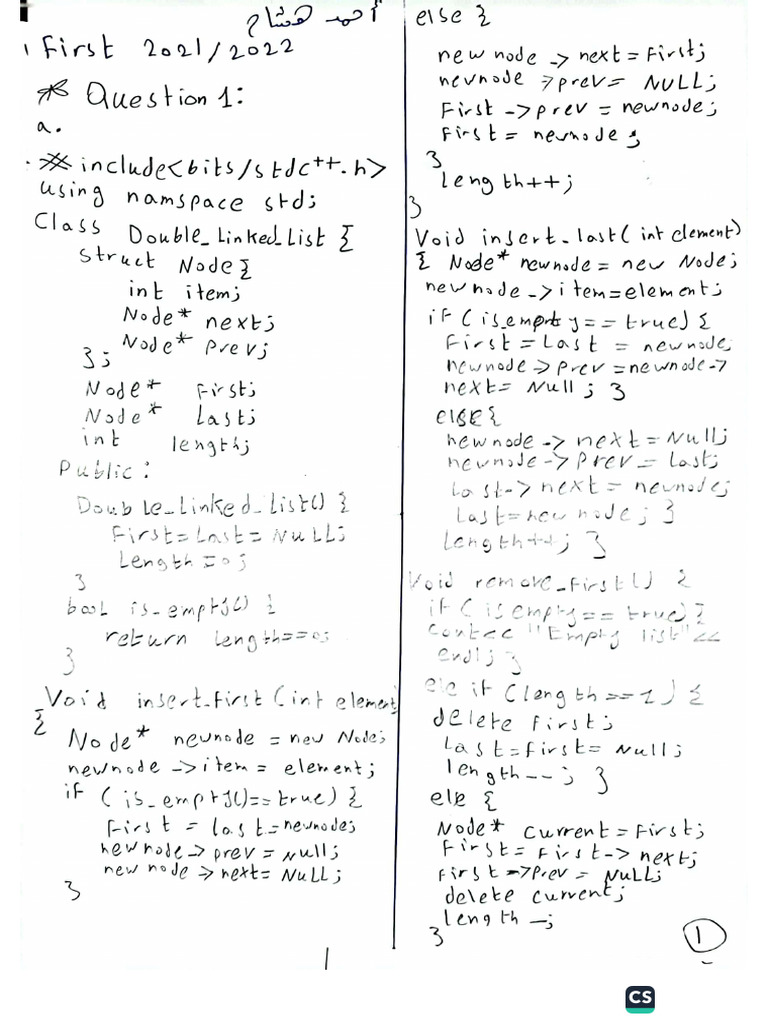 أحمد هشام
First 2021/2022
* Question 1:
a.
# include<bits/stdc++.h>
using namspace std;
Class Double_Linked_List {
struct Node{
int item;
Node* next;
Node* prev;
};
Node* First;
Node* Last;
int length;
Public:
Double_Linked_List() {
First=Last=NULL;
Length=0;
}
bool is_empty() {
return length==0;
}
Void insert_first (int element)
{
Node* newnode = new Node;
newnode ->item = element;
if (is_empty()==true) {
First = last=newnode;
newnode->prev = Null;
new node ->next= NULL;
}
else {
new node -> next = First;
newnode ->prev= NULL;
First ->prev = newnode;
First = newnode;
}
length++;
}
Void insert_last( int element)
{ Node* newnode = new Node;
newnode ->item=element;
if (is_empty==true) {
First=Last = newnode;
newnode->prev =newnode->
next= Null; }
else{
newnode -> next = Null;
newnode->prev = last;
Last-> next = newnode;
Last=new node; }
Length++; }
Void remove_first() {
if (is empty== true) {
"Empty list"<<
endl; }
if (length==1) {
delete first;
Last=first= Null;
length--; }
else {
Node* current=First;
First= First-> next;
First->prev = NULL;
delete current;
length —;
}
1
CS